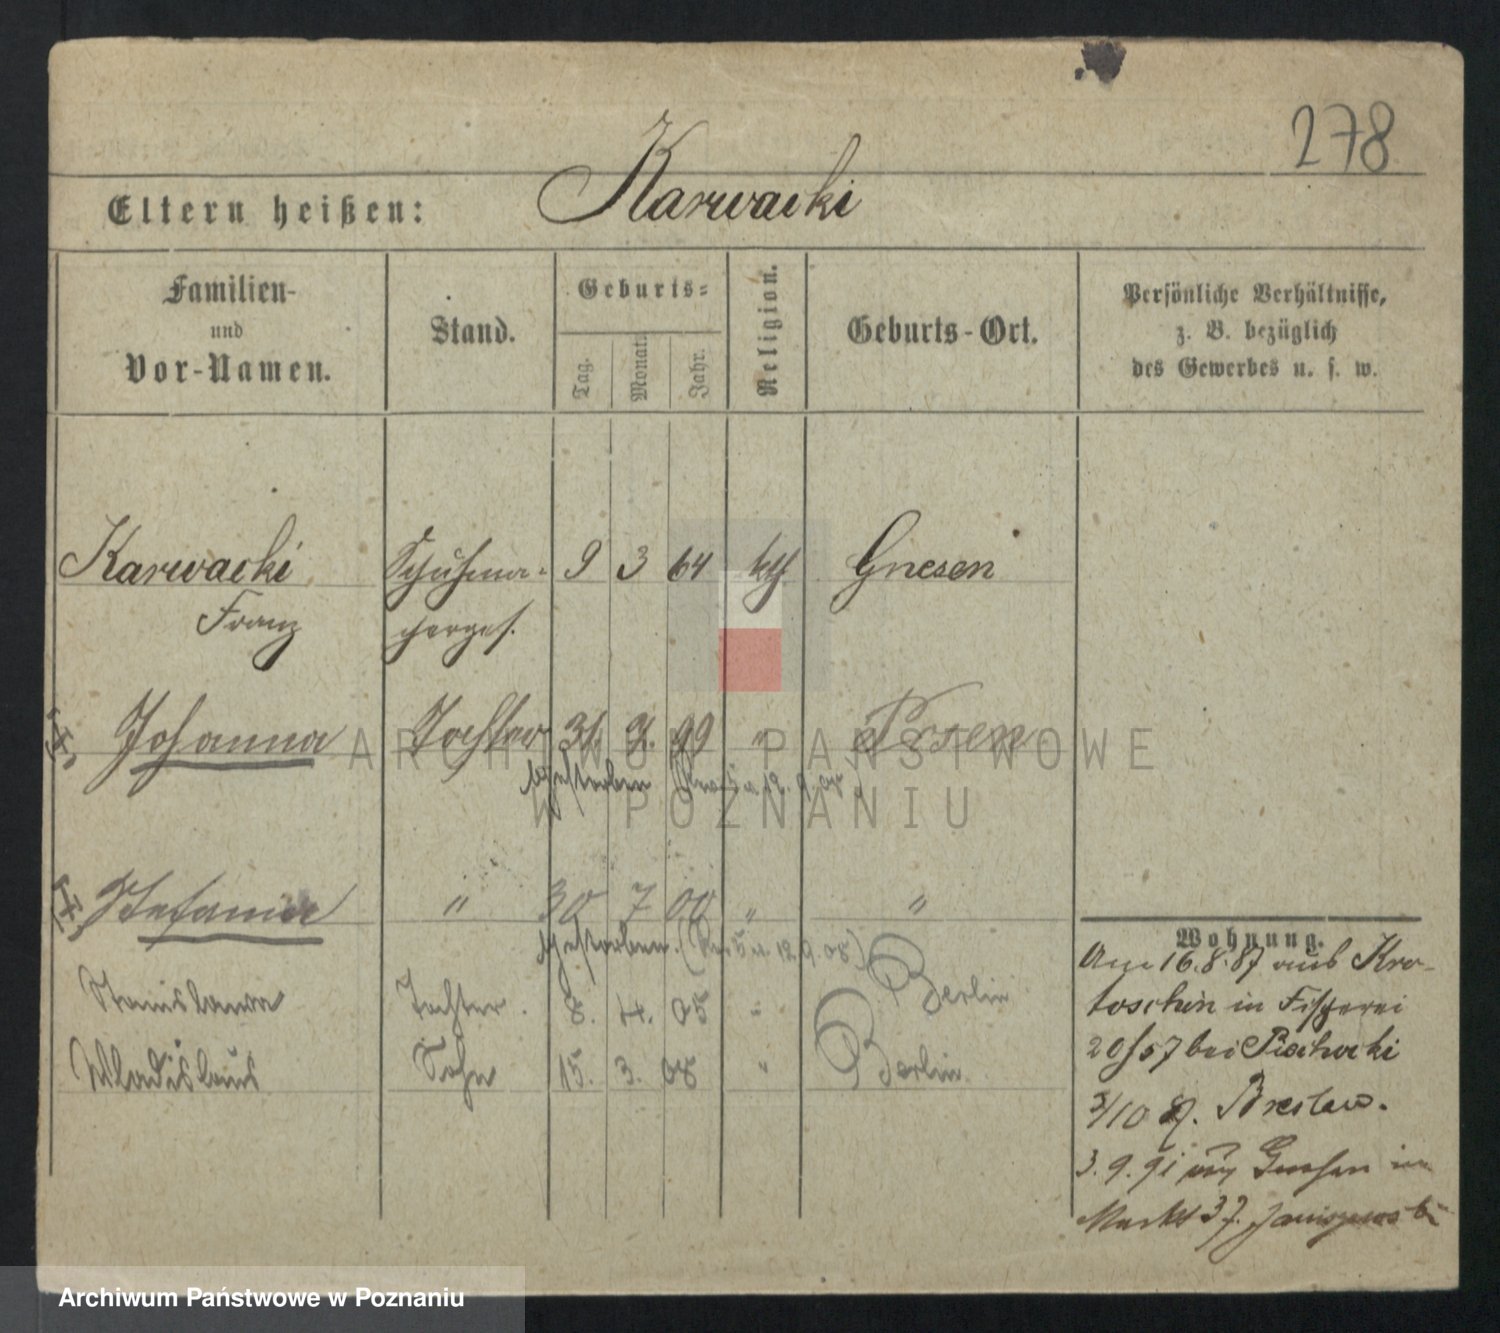 278
Eltern heißen: Karwacki
Familien- und Vor-Namen.
Stand.
Geburts-
Tag. Monat. Jahr.
Religion.
Geburts-Ort.
Persönliche Verhältnisse,
z. B. bezüglich
des Gewerbes u. s. w.
Karwacki Schuhma- 9 3 64 kth. Gnesen
Franz cherges.
Johanna Tochter 31. 99 " Posen
gestorben 12. 9. 08
Stefania " 30 7 00 " "
gestorben. (Rev 5 u. 12. 9. 08)
Stanislawa Tochter. 8. 4. 05 " Berlin
Wladislaus Sohn 15. 3. 08 " Berlin.
Wohnung.
Am 16.8.87 aus Kro-
toschin in Fischerei
20/57 bei Piechocki
3/10 89. Breslau.
3. 9. 91 Gnesen in
Markt 37.
ARCHIWUM PAŃSTWOWE
W POZNANIU
Archiwum Państwowe w Poznaniu